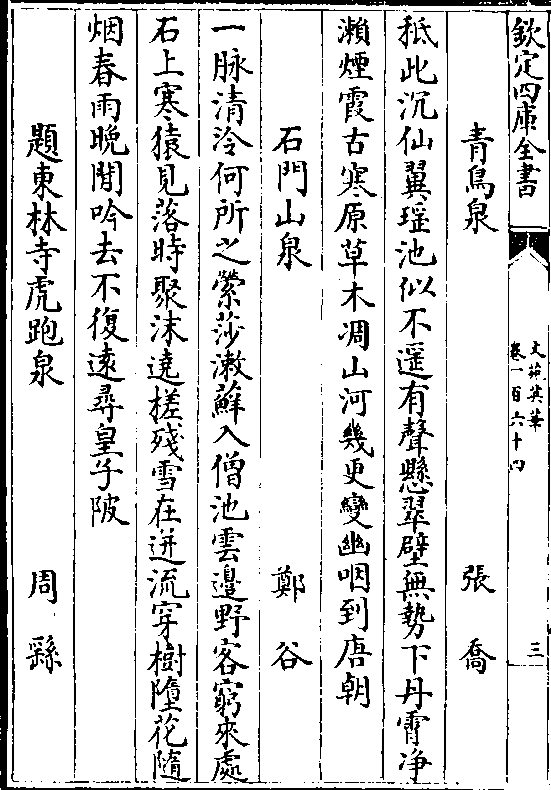 欽定四庫全書
文苑英華
卷一百六十四
三
青鳥泉 張喬
秪此沉仙翼瑶池似不遥有聲懸翠壁無勢下丹霄净
瀨煙霞古寒原草木凋山河幾更變幽咽到唐朝
石門山泉 鄭谷
一脉清泠何所之縈莎漱蘚入僧池雲邊野客窮來處
石上寒猿見落時聚沫遶槎殘雪在迸流穿樹墮花隨
烟春雨晚閒吟去不復遠尋皇子陂
題東林寺虎跑泉 周繇